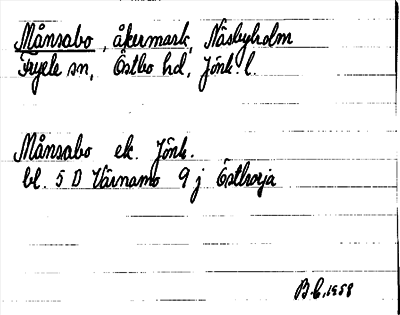 Månsabo, åkermark, Näsbyholm
Fryele sn, Östbo hd, Jönk. l.
Månsabo ek. Jönk.
bl. 5 D Värnamo 9 j Östhorja
B.C. 1958